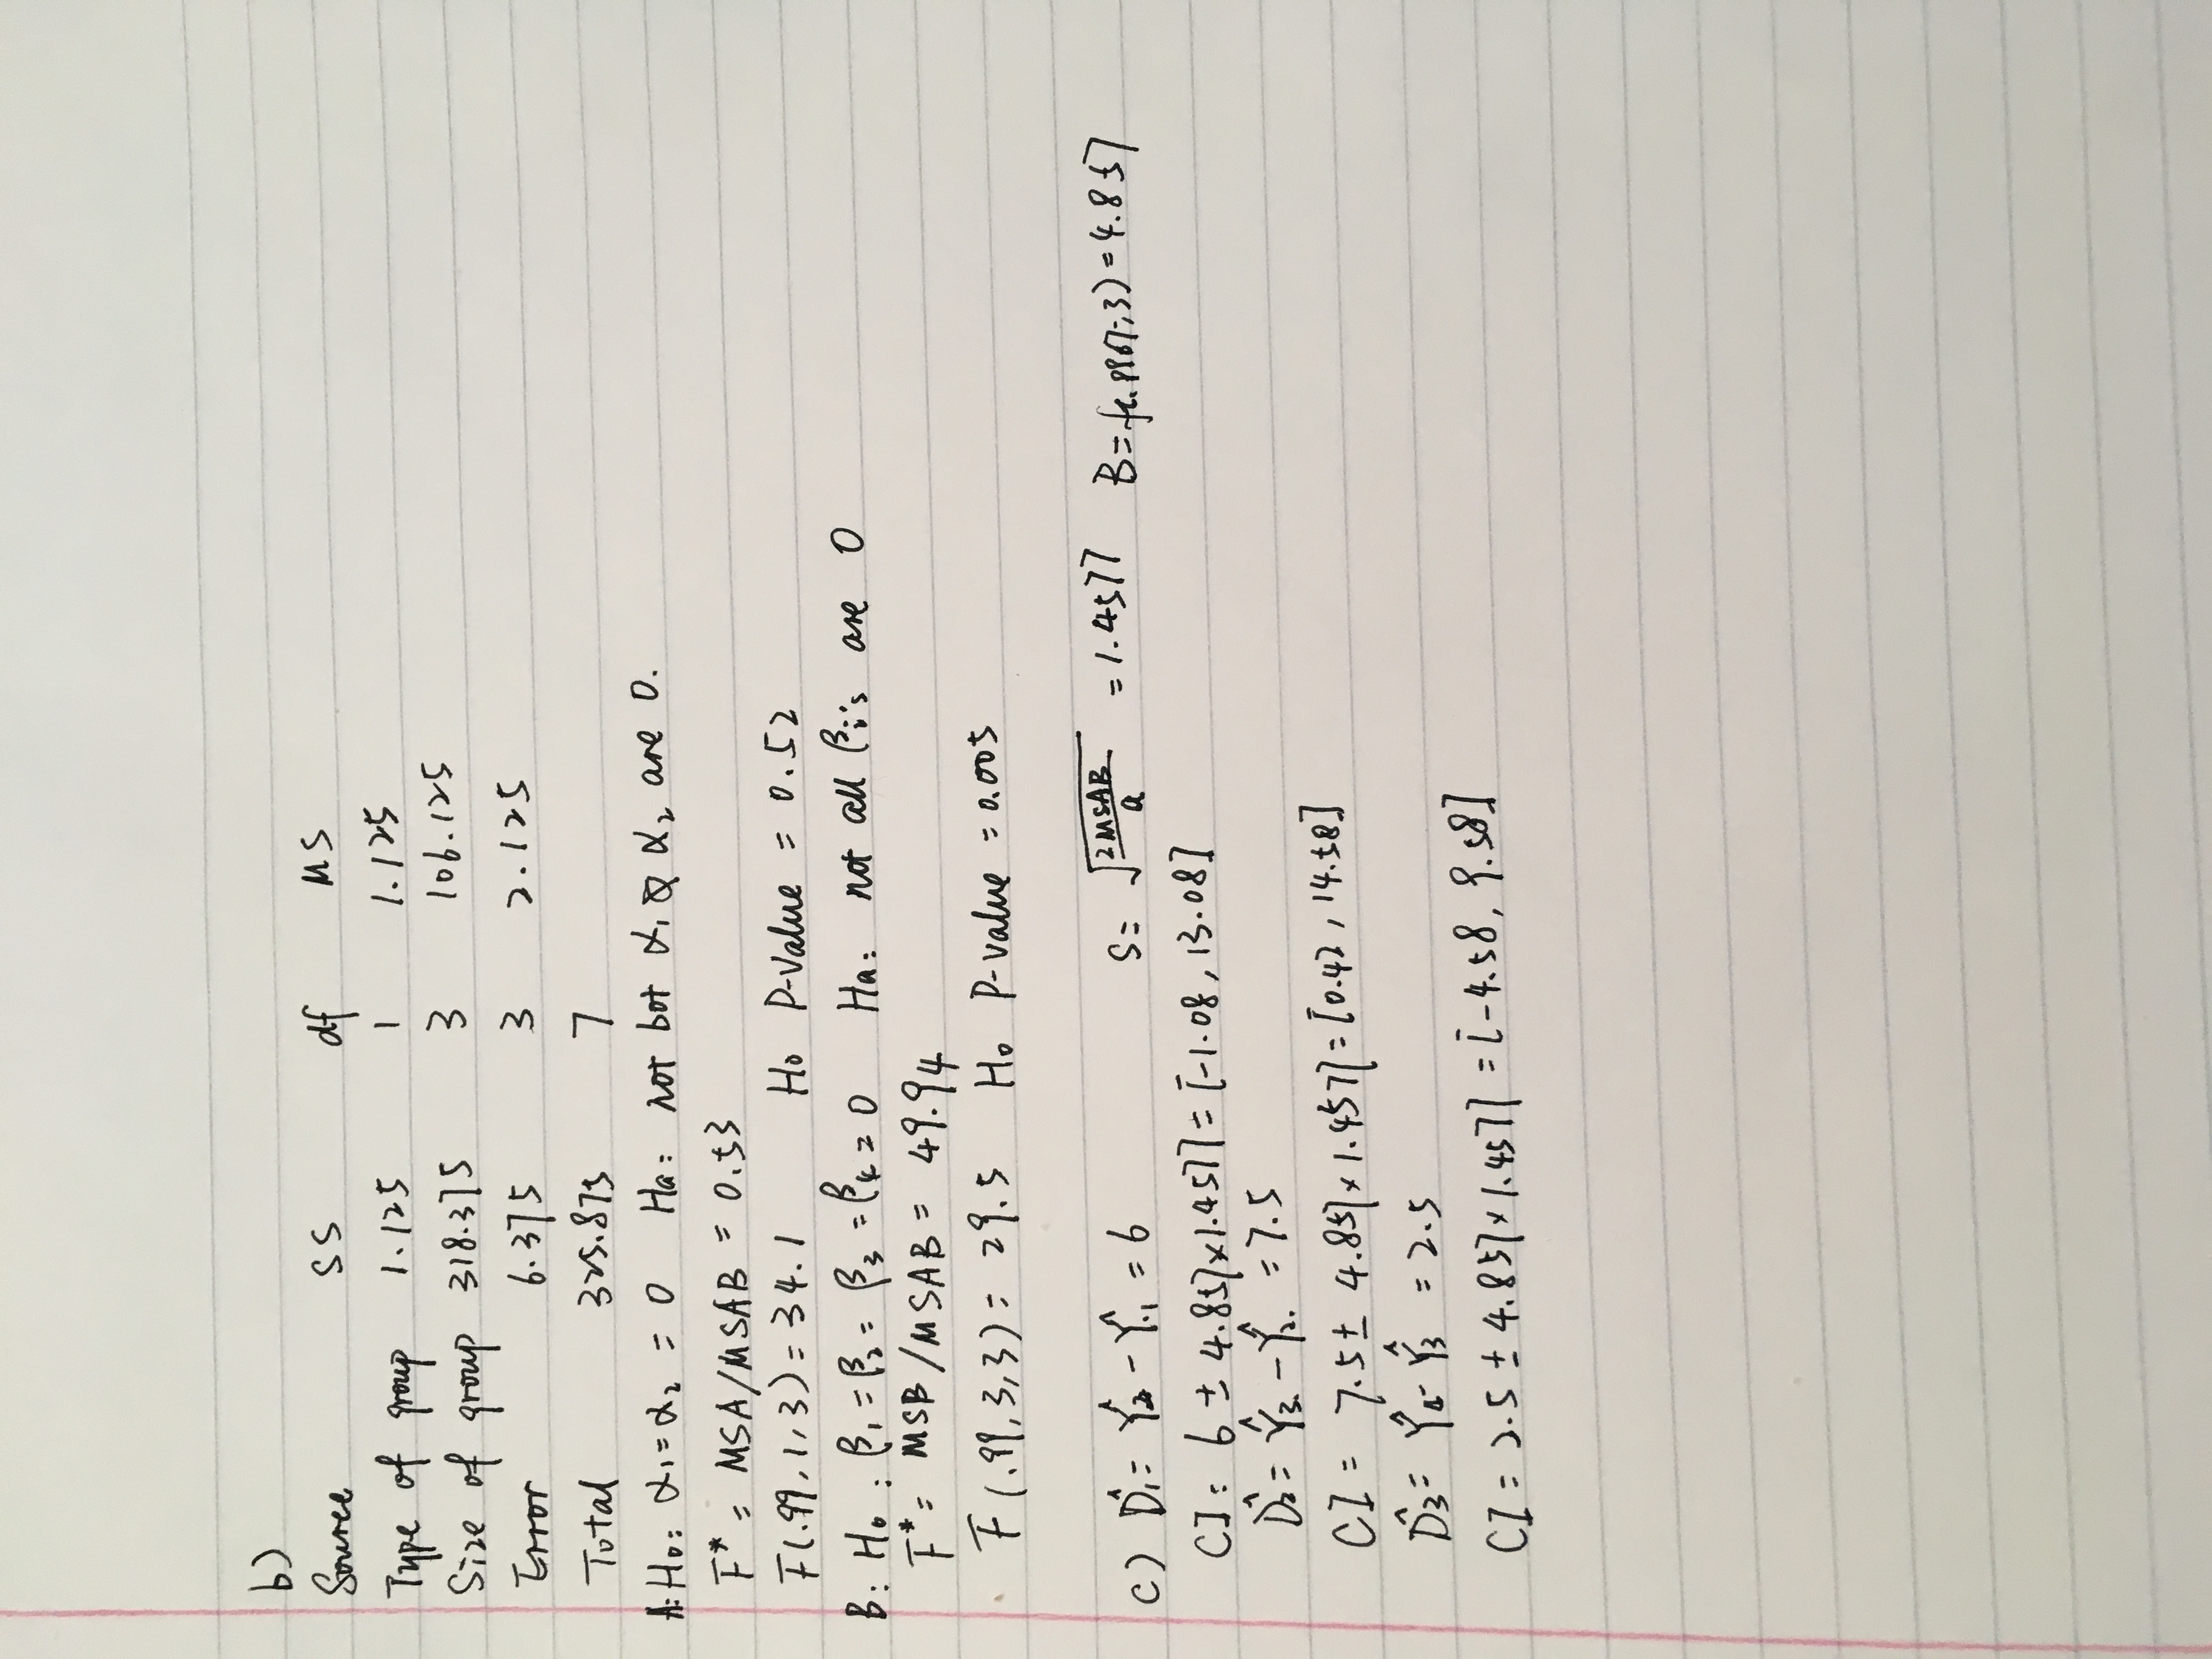 b)
Source SS df MS
Type of group 1.125 1 1.125
Size of group 318.375 3 106.125
Error 6.375 3 2.125
Total 325.875 7
A: H₀: α₁=α₂ = 0 Ha: not bot α₁ & α₂ are 0.
F* = MSA/MSAB = 0.53
F(.99,1,3)=34.1 H₀ P-value = 0.52
B: H₀: β₁=β₂=β₃=β₄=0 Ha: not all βi's are 0
F* = MSB/MSAB = 49.94
F(.99,3,3)= 29.5 H₀ P-value = 0.005
C) D̂₁= Ŷ.₂ - Ŷ.₁ = 6 S= √(2MSAB/a) = 1.4577 B= t(.9967;3)=4.857
CI: 6 ± 4.857×1.4577=[-1.08, 13.08]
D̂₂= Ŷ₃. - Ŷ₂. =7.5
CI = 7.5± 4.857×1.4577=[0.42, 14.58]
D̂₃= Ŷ₄- Ŷ₃ = 2.5
CI = 2.5 ± 4.857×1.4577 =[-4.58, 9.58]